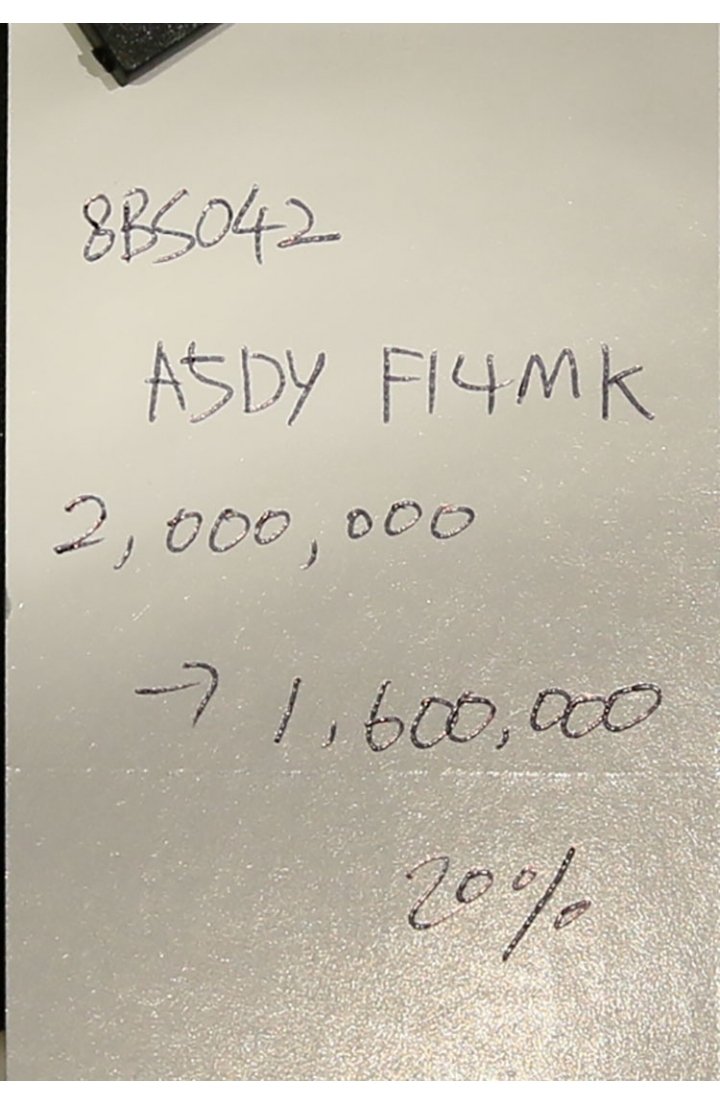 8BS042
A5DY F14MK
2,000,000
→ 1,600,000
20%